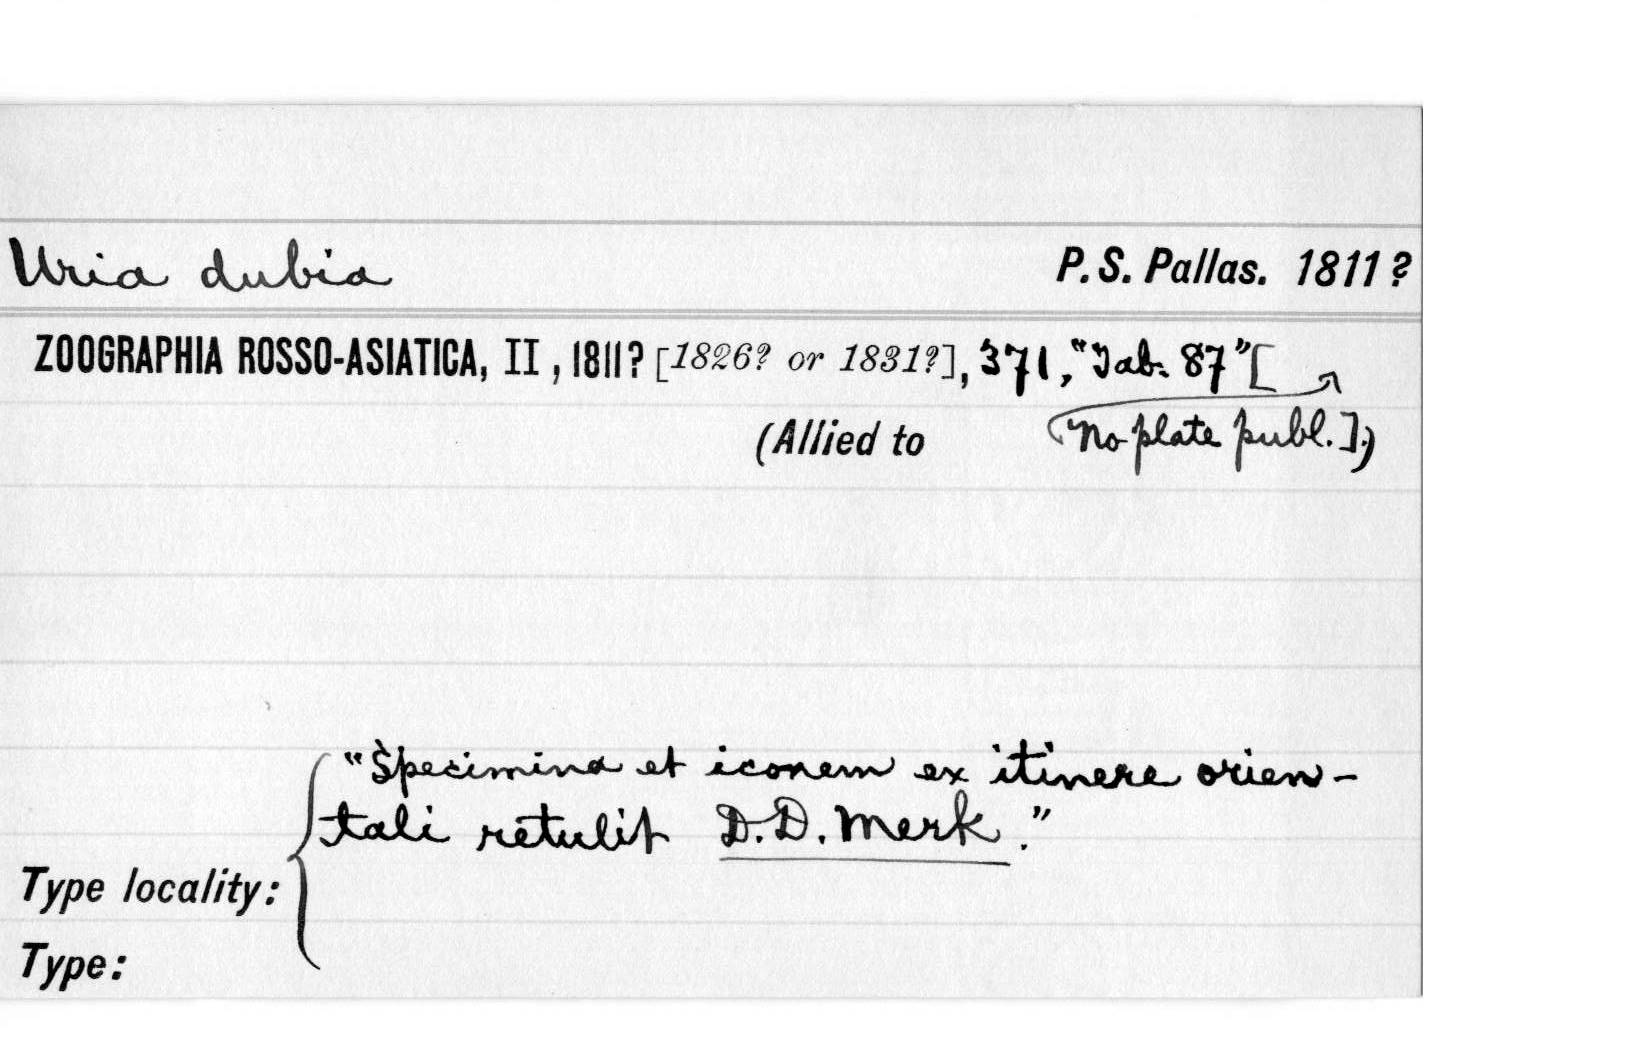 Uria dubia P. S. Pallas. 1811?
ZOOGRAPHIA ROSSO-ASIATICA, II, 1811? [1826? or 1831?], 371, "Tab. 87" [
(Allied to No plate publ.].)
"Specimina et iconem ex itinere orien-
tali retulit D. D. Merk."
Type locality:
Type: